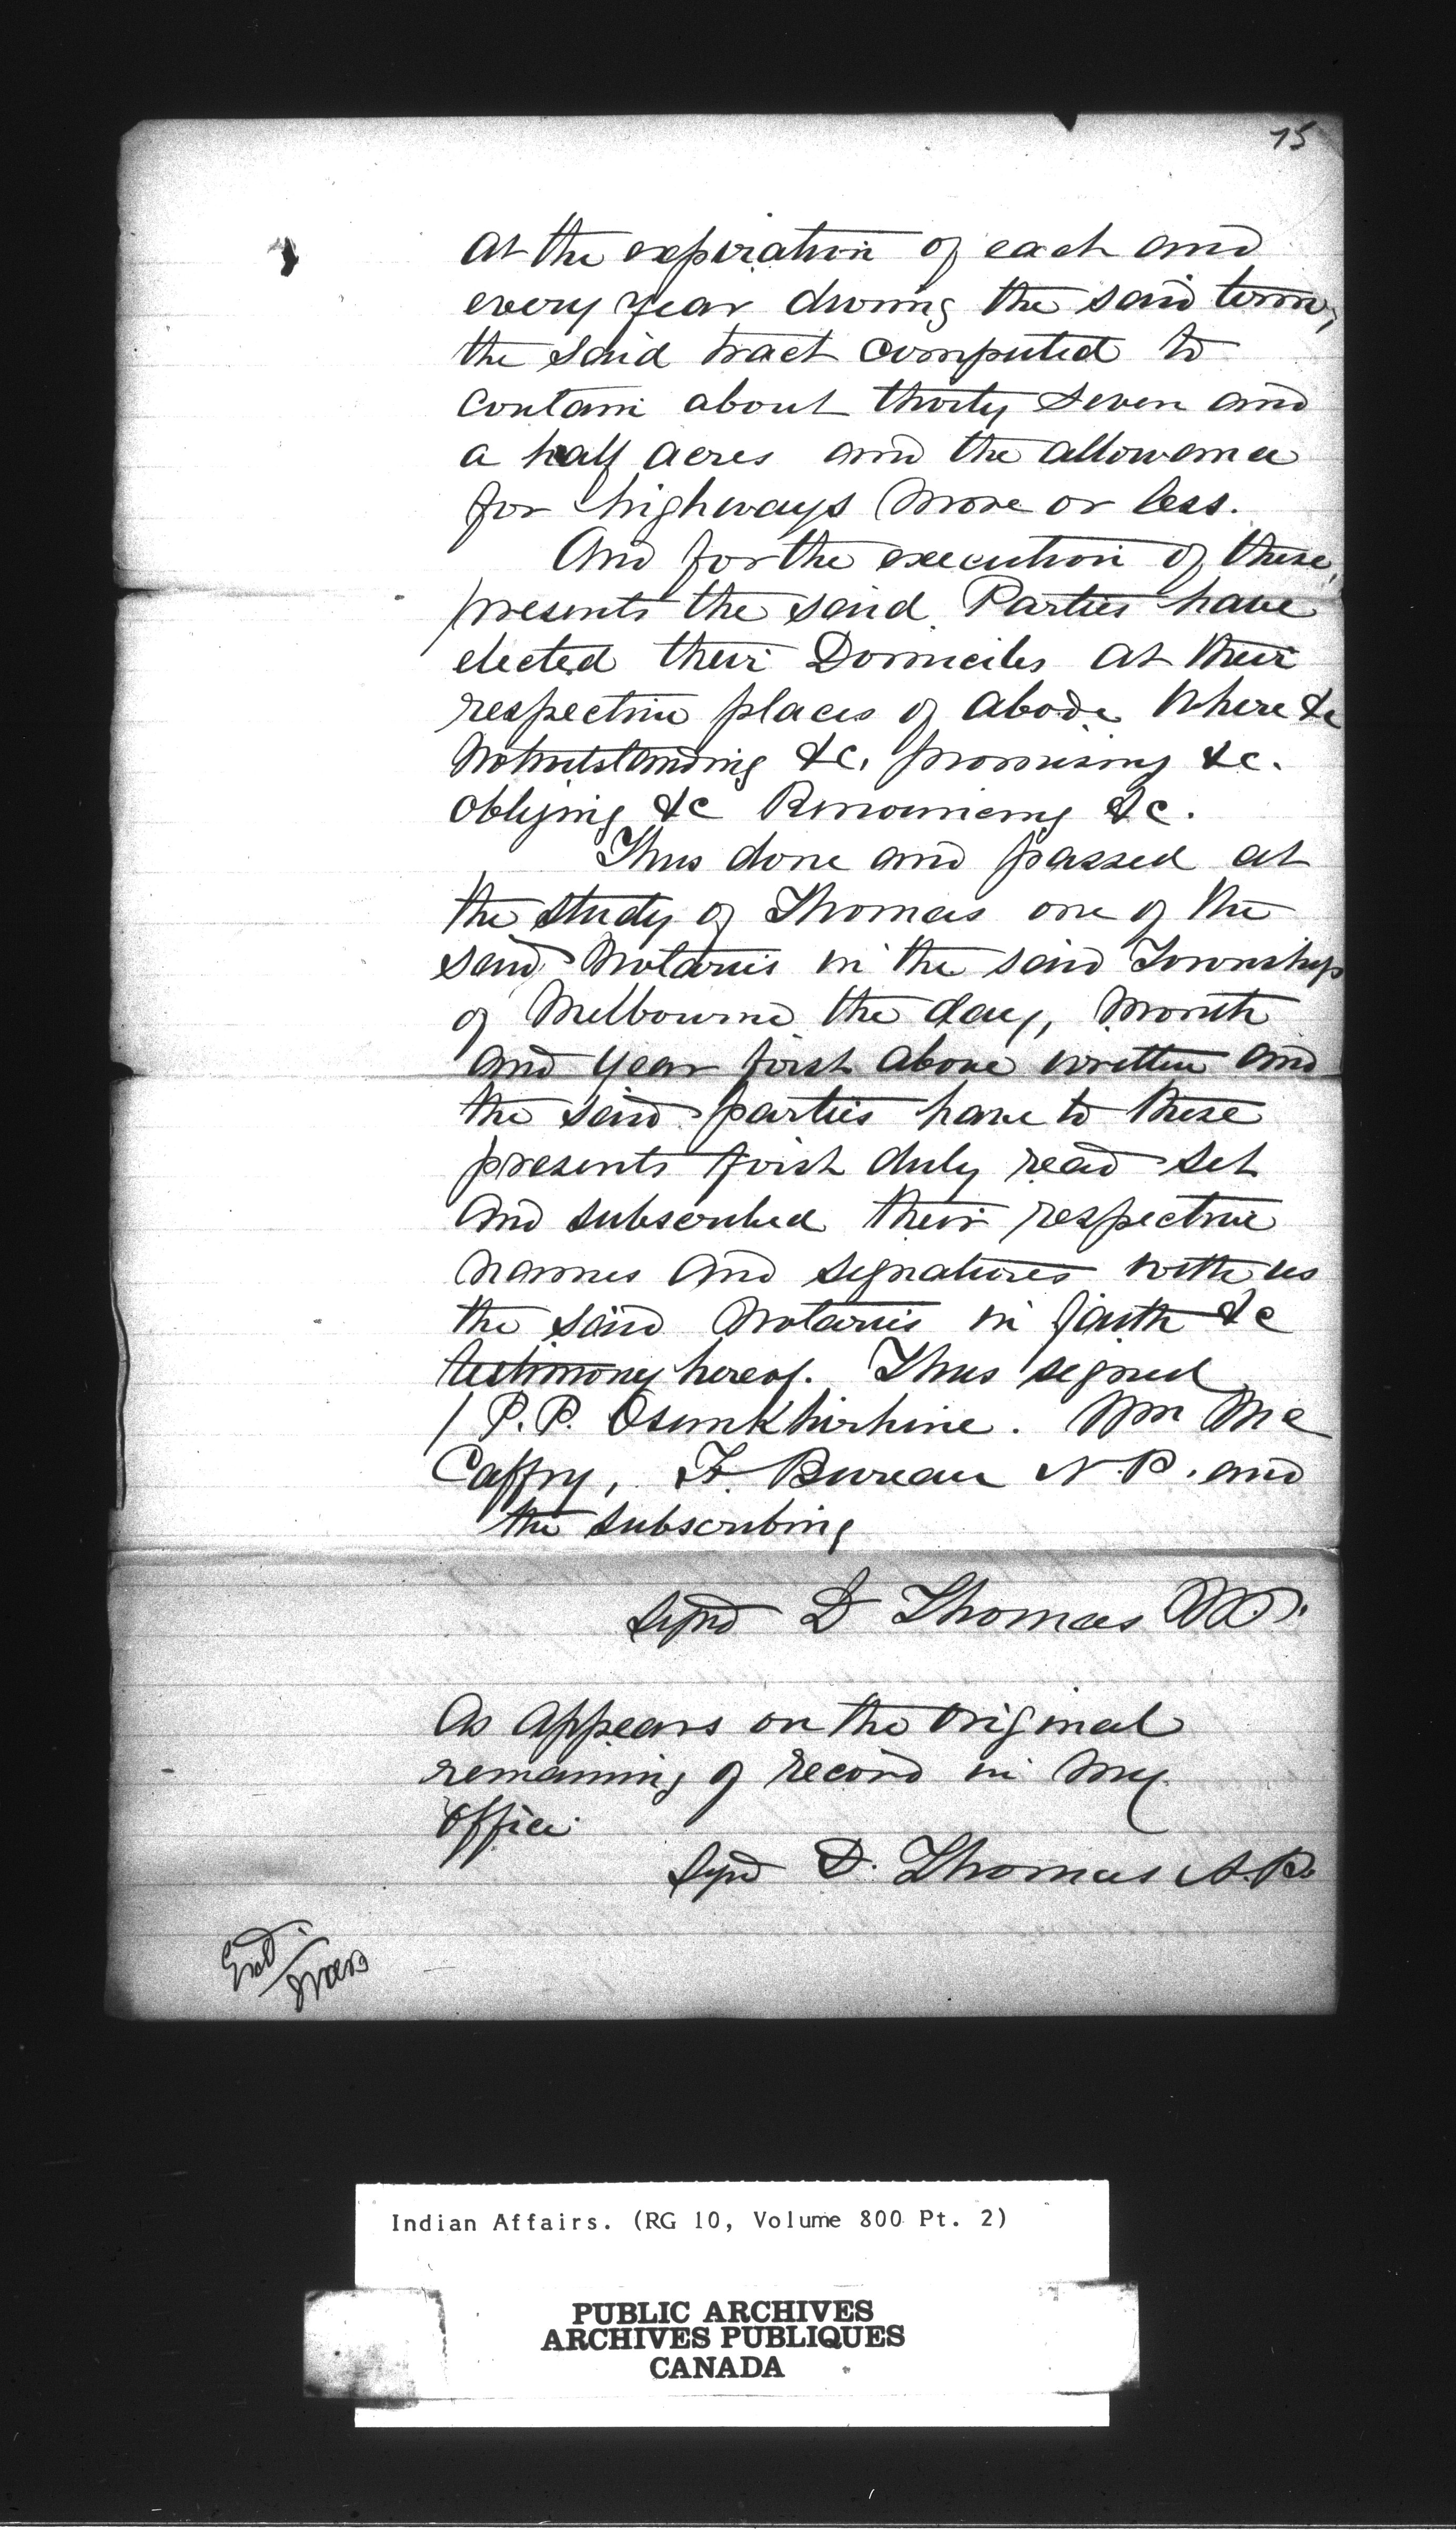 75
at the expiration of each and
every year during the said term,
the said tract computed to
contain about thirty seven and
a half acres and the allowance
for highways more or less.
And for the execution of these
presents the said Parties have
elected their Domiciles at their
respective places of abode Where &c
Notwithstanding &c. promising &c.
obliging &c Renouncing &c.
Thus done and passed at
the study of Thomas one of the
said Notaries in the said Township
of Melbourne the day, month
and year first above written and
the said parties have to these
presents first duly read set
and subscribed their respective
names and signatures with us
the said Notaries in faith &c
testimony hereof. Thus signed
/ P.P. Osunkhirhine. Wm Mc
Caffry, F. Bureau N.P. and
the subscribing
Signd D Thomas N.P.
As appears on the original
remaining of record in my
office
Signd D. Thomas N.P.
Indian Affairs. (RG 10, Volume 800 Pt. 2)
PUBLIC ARCHIVES
ARCHIVES PUBLIQUES
CANADA